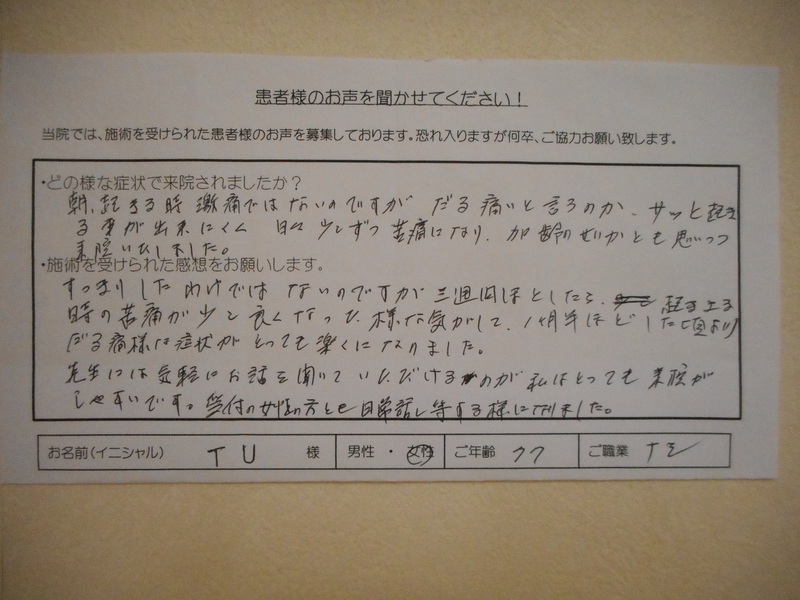 患者様のお声を聞かせてください！
当院では、施術を受けられた患者様のお声を募集しております。恐れ入りますが何卒、ご協力お願い致します。
・どの様な症状で来院されましたか？
朝、起きる時 激痛ではないのですが だる痛いと言うのか、サッと起き
る事が出来にくく 日々少しずつ苦痛になり、加齢のせいかとも思いつつ
来院いたしました。
・施術を受けられた感想をお願いします。
すっきりしたわけではないのですが 三週間ほどしたら、起き上る
時の苦痛が少し良くなった様な気がして、1ヶ月半ほどした頃より
だる痛様な症状がとっても楽になりました。
先生には気軽にお話を聞いていただけるのが 私はとっても 来院が
しやすいです。受付の の方とも日常話し等する様になりました。
お名前(イニシャル) TU 様 男性・女性 ご年齢 77 ご職業 ナシ